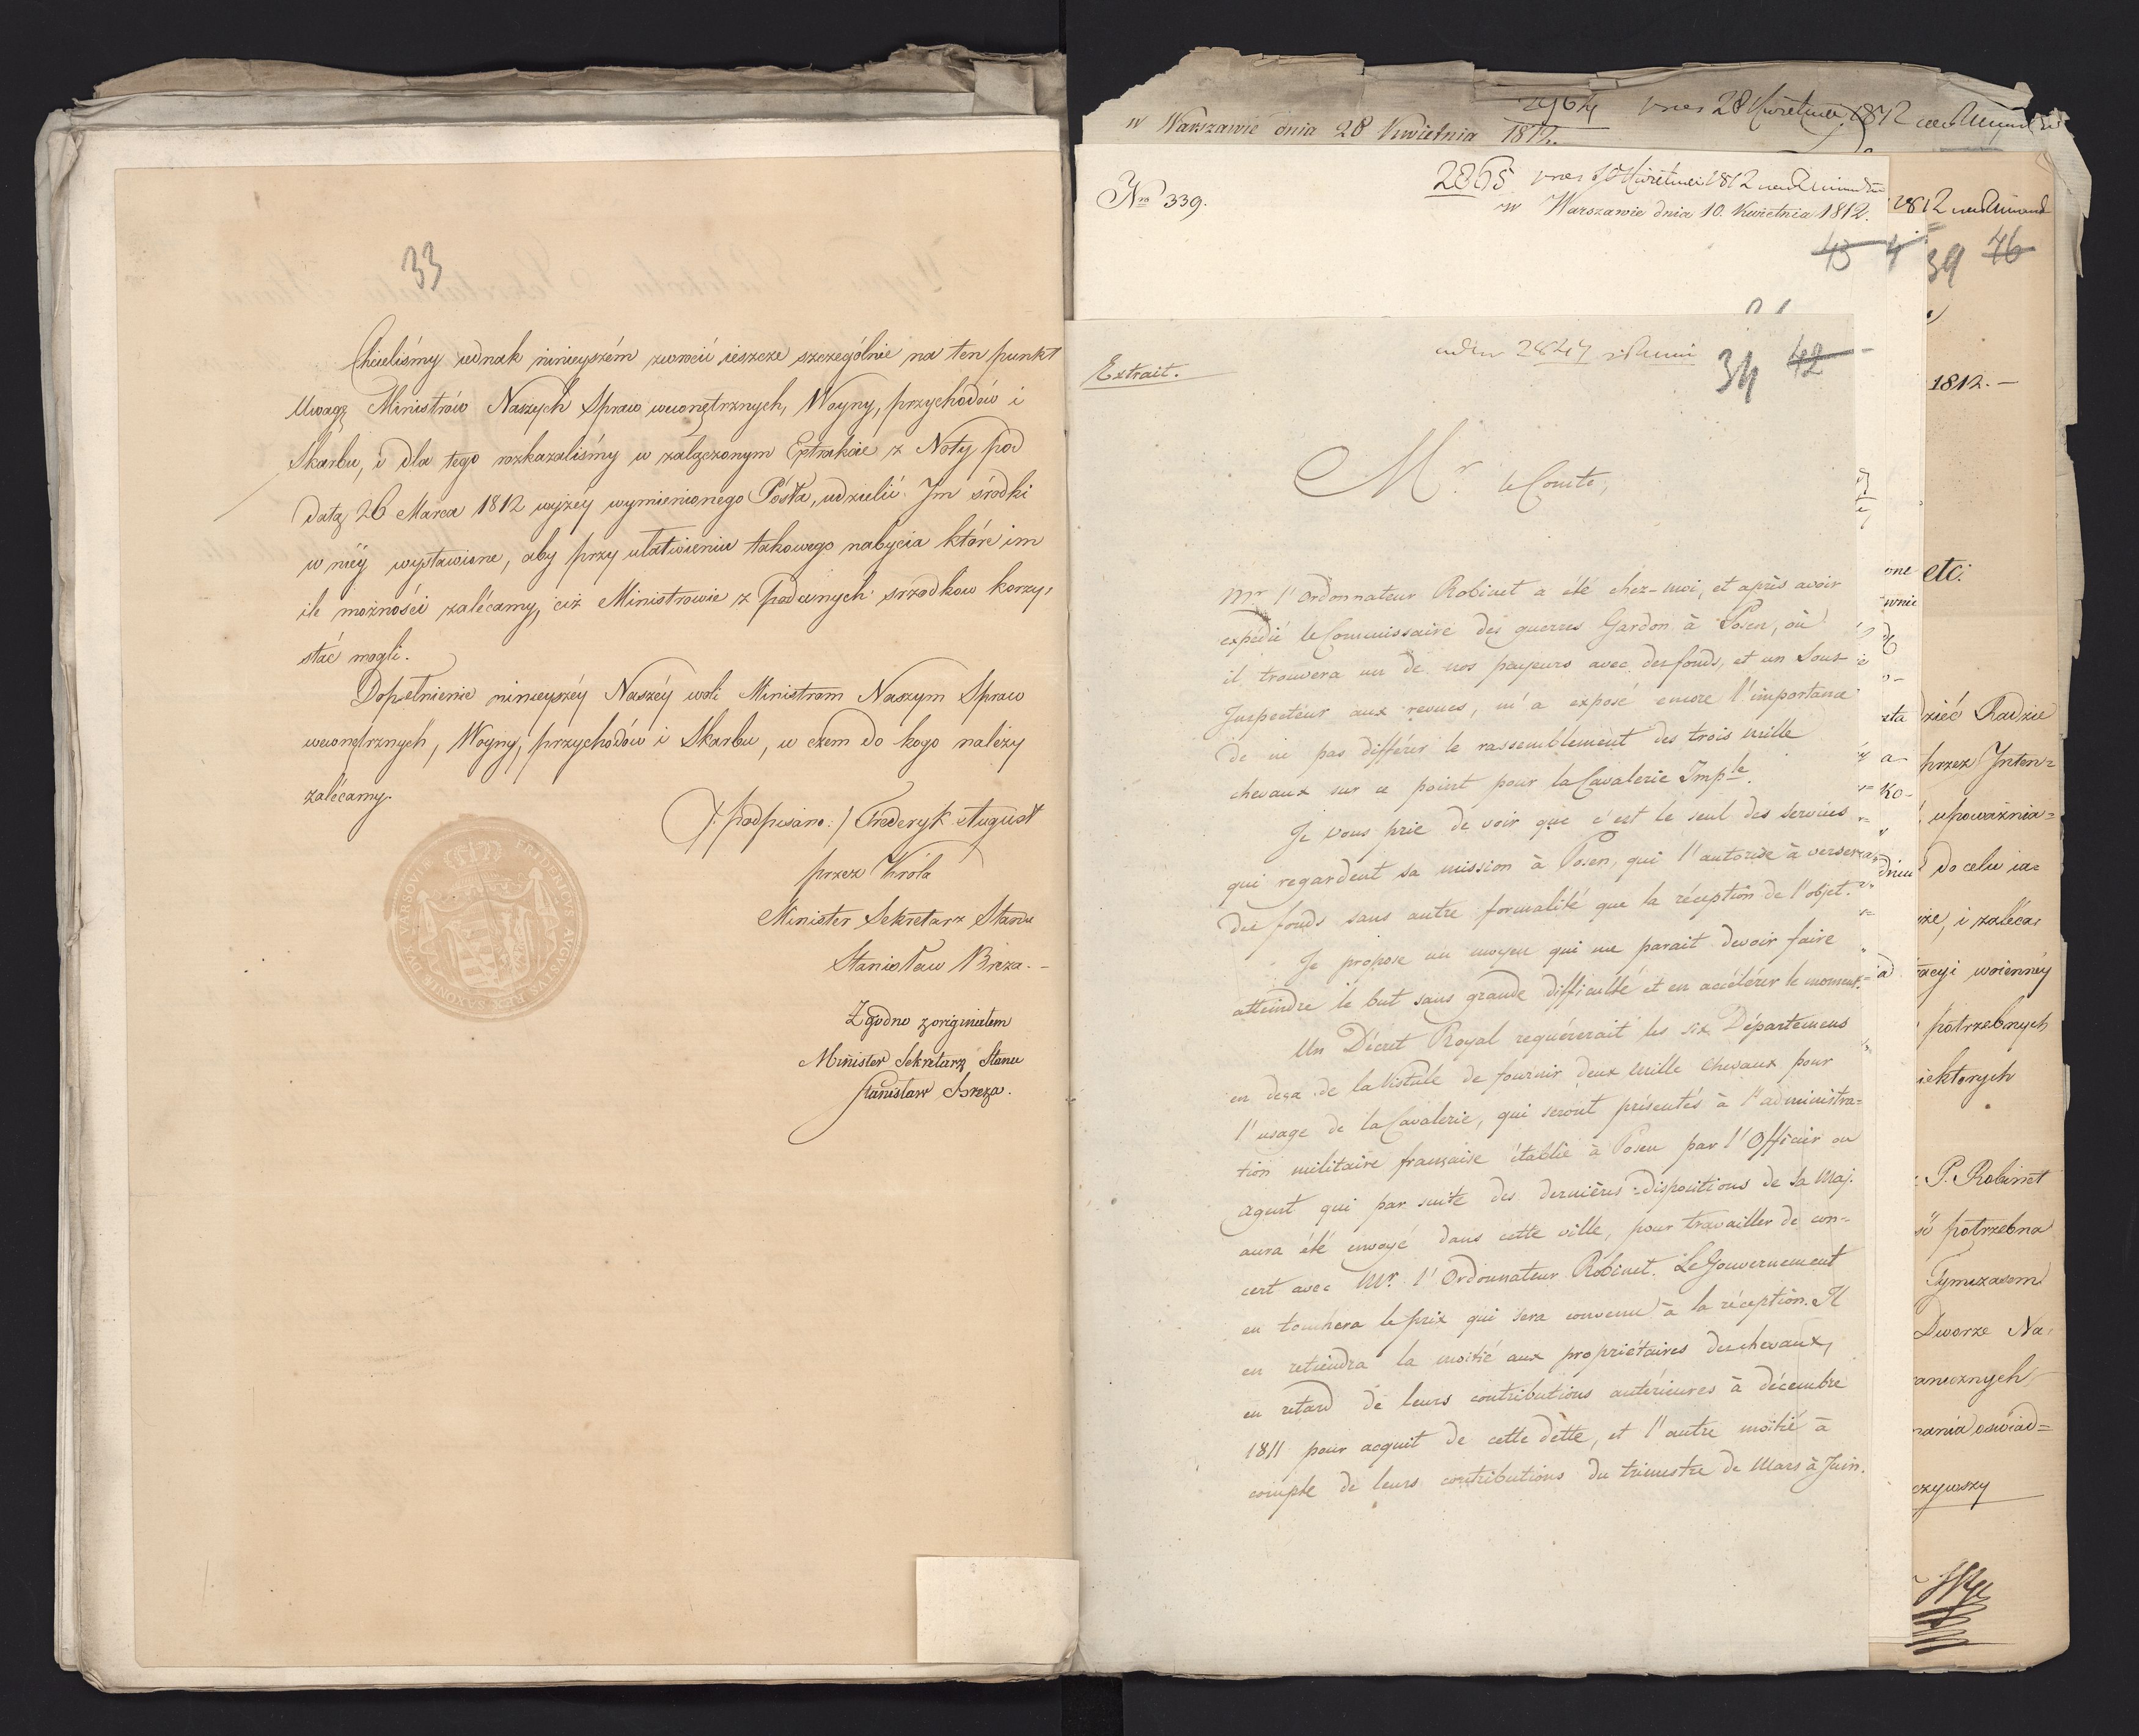 33
Chcieliśmy jednak ninieyszém zwrócić ieszcze szczególnie na ten punkt
Uwagę Ministrów Naszych Spraw wewnętrznych, Woyny, przychodów i
Skarbu, i dla tego rozkazaliśmy w załączonym Extrakcie z Noty pod
datą 26 Marca 1812 wyżey wymienionego Posła, udzielić Im środki
w niéy wystawione, aby przy ułatwieniu takowego nabycia które im
ile możności zalécamy, ciż Ministrowie z podanych srzodkow korzy-
stać mogli.
Dopełnienie ninieyszéy Naszéy woli Ministrom Naszym Spraw
wewnętrznych, Woyny, przychodów i Skarbu, w czem do kogo należy
zalécamy.
/: podpisano :/ Fréderyk August
przez Króla
Minister Sekretarz Stanu
Stanisław Breza. -
Zgodno z originałem
Minister Sekretarz Stanu
Stanisław Breza.
FRIDERICVS AVGVSTVS REX SAXONIÆ DVX VARSOVIÆ
2964 28 Kwietnia 1812
w Warszawie dnia 28 Kwietnia 1812.
Nro 339.
2865 Kwietnia 1812
w Warszawie dnia 10. Kwietnia 1812.
43
Extrait.
34 42
Mr. le Comte,
Mr l'Ordonnateur Robinet a été chez-moi, et après avoir
expédié le Commissaire des guerres Gardon à Posen, où
il trouvera un de nos payeurs avec des fonds, et un Sous-
Inspecteur aux revues, m'a exposé encore l'importance
de ne pas différer le rassemblement des trois mille
chevaux sur ce point pour la Cavalerie Imple.
Je vous prie de voir que c'est le seul des services
qui regardent sa mission à Posen, qui l'autorise à verser
des fonds sans autre formalité que la réception de l'objet.
Je propose un moyen qui me parait devoir faire
atteindre le but sans grande difficulté et en accélérer le moment.
Un Décret Royal requérerait les six Départemens
en deça de la Vistule de fournir deux mille chevaux pour
l'usage de la Cavalerie, qui seront présentés à l'administra=
tion militaire française établie à Posen par l'Officier ou
agent qui par suite des dernières dispositions de Sa Maj.
aura été envoyé dans cette ville, pour travailler de con=
cert avec Mr. l'Ordonnateur Robinet. Le Gouvernement
en touchera le prix qui sera convenu à la réception. Il
en retiendra la moitié aux propriétaires des chevaux,
en retard de leurs contributions antérieures à décembre
1811 pour acquit de cette dette, et l'autre moitié à
compte de leurs contributions du trimestre de Mars à Juin.
1812
39 46
1812. -
etc.
dzieć Radzie
przez Inten=
upoważnia=
do celu ia=
i zaléca=
woiennéy
potrzebnych
iektorych
P. Robinet
potrzebna
Tymczasem
Dworze Na=
anicznych